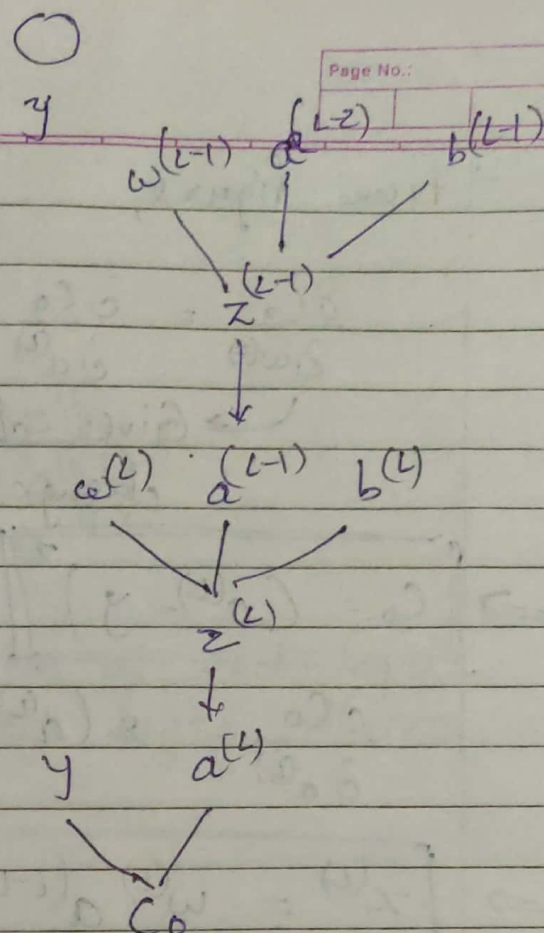 Page No.:
y
w^(L-1) a^(L-2) b^(L-1)
z^(L-1)
w^(L) a^(L-1) b^(L)
z^(L)
y a^(L)
C₀